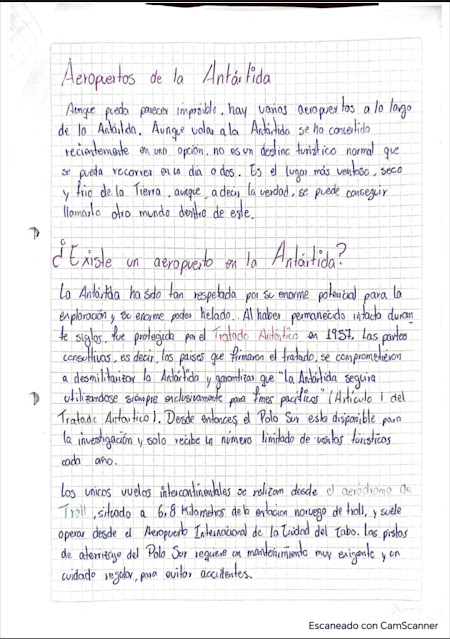 Aeropuertos de la Antártida
Aunque pueda parecer imposible, hay varios aeropuertos a lo largo
de la Antártida. Aunque volar a la Antártida se ha convertido
recientemente en una opción, no es un destino turístico normal que
se pueda recorrer en un día o dos. Es el lugar más ventoso, seco
y frio de la Tierra, aunque, a decir la verdad, se puede conseguir
llamarlo otro mundo dentro de este.
¿Existe un aeropuerto en la Antártida?
La Antártida ha sido tan respetada por su enorme potencial para la
exploración y su enorme poder helado. Al haber permanecido intacta duran
te siglos, fue protegida por el Tratado Antártico en 1957. Las partes
consultivas, es decir, los paises que firmaron el tratado, se comprometieron
a desmilitarizar la Antártida y garantizar que "La Antártida seguira
utilizandose siempre exclusivamente para fines pacificos" (Articulo 1 del
Tratado Antartico). Desde entonces el Polo Sur esta disponible para
la investigación y solo recibe un número limitado de visitas turisticas
cada año.
Los unicos vuelos intercontinentales se realizan desde el aeródromo de
Troll, situado a 6,8 Kilometros de la estacion noruego de troll, y suele
operar desde el Aeropuerto Internacional de la Ciudad del Cabo. Las pistas
de aterrizaje del Polo Sur requiere un mantenimiento muy exigente y un
cuidado regular, para evitar accidentes.
Escaneado con CamScanner